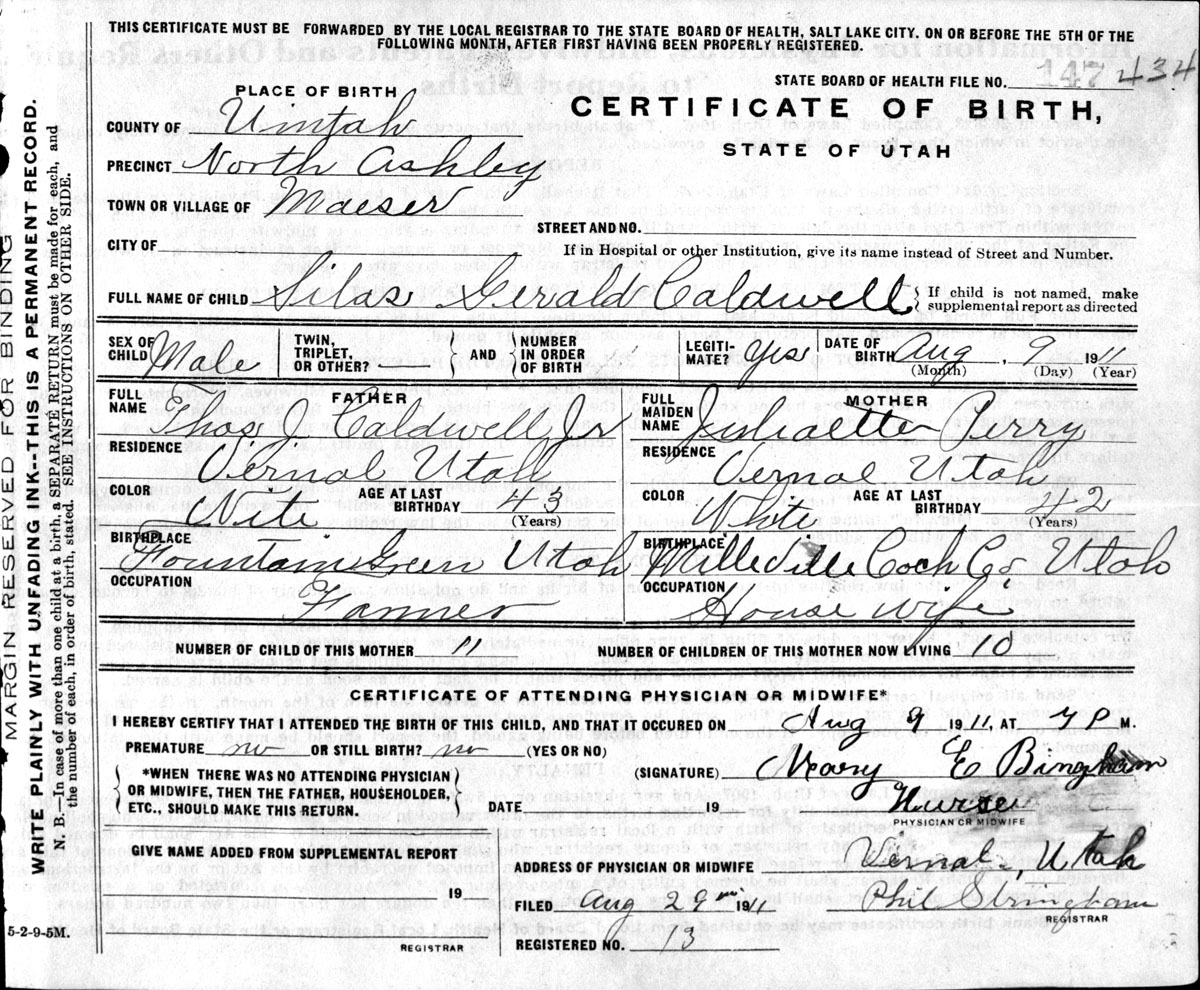 THIS CERTIFICATE MUST BE FORWARDED BY THE LOCAL REGISTRAR TO THE STATE BOARD OF HEALTH, SALT LAKE CITY. ON OR BEFORE THE 5TH OF THE
FOLLOWING MONTH, AFTER FIRST HAVING BEEN PROPERLY REGISTERED.
STATE BOARD OF HEALTH FILE NO. 147 434
PLACE OF BIRTH
CERTIFICATE OF BIRTH,
STATE OF UTAH
COUNTY OF Uintah
PRECINCT North Ashley
TOWN OR VILLAGE OF Maeser
STREET AND NO.
CITY OF
If in Hospital or other Institution, give its name instead of Street and Number.
FULL NAME OF CHILD Silas Gerald Caldwell { If child is not named, make
supplemental report as directed
SEX OF CHILD Male TWIN, TRIPLET, OR OTHER? — AND NUMBER IN ORDER OF BIRTH LEGITI-MATE? Yes DATE OF BIRTH Aug. 9 1911
(Month) (Day) (Year)
FATHER
FULL NAME Thos. J. Caldwell Jr
RESIDENCE Vernal Utah
COLOR Wite AGE AT LAST BIRTHDAY 43
(Years)
BIRTHPLACE Fountain Green Utah
OCCUPATION Farmer
MOTHER
FULL MAIDEN NAME Perry
RESIDENCE Vernal Utah
COLOR White AGE AT LAST BIRTHDAY 42
(Years)
BIRTHPLACE Milleville Cach Co Utah
OCCUPATION House wife
NUMBER OF CHILD OF THIS MOTHER 11 NUMBER OF CHILDREN OF THIS MOTHER NOW LIVING 10
CERTIFICATE OF ATTENDING PHYSICIAN OR MIDWIFE*
I HEREBY CERTIFY THAT I ATTENDED THE BIRTH OF THIS CHILD, THAT IT OCCURED ON Aug 9 1911, AT 7 P M.
PREMATURE no OR STILL BIRTH? no (YES OR NO)
(SIGNATURE) Mary E Bingham
{ *WHEN THERE WAS NO ATTENDING PHYSICIAN
OR MIDWIFE, THEN THE FATHER, HOUSEHOLDER,
ETC., SHOULD MAKE THIS RETURN. }
DATE 19 Nurse
PHYSICIAN OR MIDWIFE
GIVE NAME ADDED FROM SUPPLEMENTAL REPORT
19
REGISTRAR
ADDRESS OF PHYSICIAN OR MIDWIFE Vernal, Utah
FILED Aug 29 1911 Phil Stringham
REGISTRAR
REGISTERED NO. 13
5-2-9-5M.
MARGIN RESERVED FOR BINDING
WRITE PLAINLY WITH UNFADING INK--THIS IS A PERMANENT RECORD.
N. B.—In case of more than one child at a birth, a SEPARATE RETURN must be made for each, and
the number of each, in order of birth, stated. SEE INSTRUCTIONS ON OTHER SIDE.